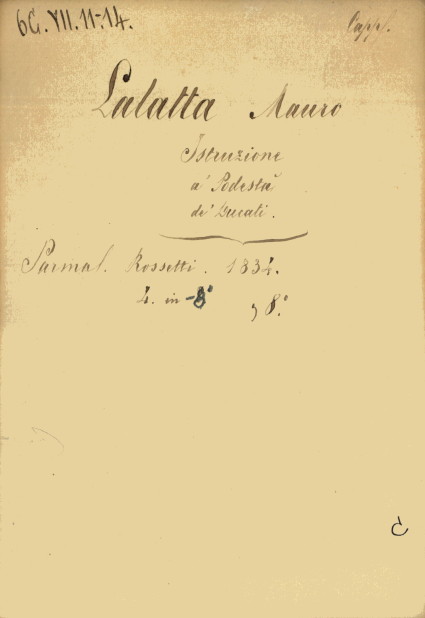 6C. VII. 11-14. Capp.
Lalatta Mauro
Istruzione
a' Podestà
de' Ducati.
Parma. Rossetti. 1834.
4. in 8° 8.°